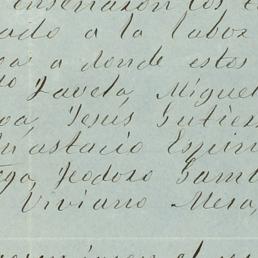 enseñazon los
ado a la laboz
a donde estos
Zavela, Miguel
oa, Jesús Gutierr
Anastacio Espin
ga Teodozo Gam
Viviano Mesa,